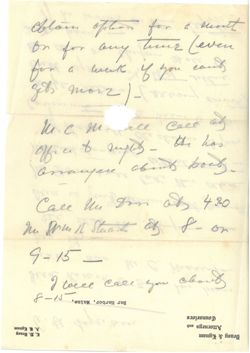 Obtain option for a month
or for any time (even
for a week if you can't
get more) —
Mr. C. M call at
office to night — He has
arranged about
Call Mr. at 4 30
Mr. Stuart at 8 – or
9 – 15 —
I will call you about
8 – 15
Bar Harbor, Maine,
Deasy & Lynam
Attorneys and
Counselors
L. B. Deasy
A. H. Lynam